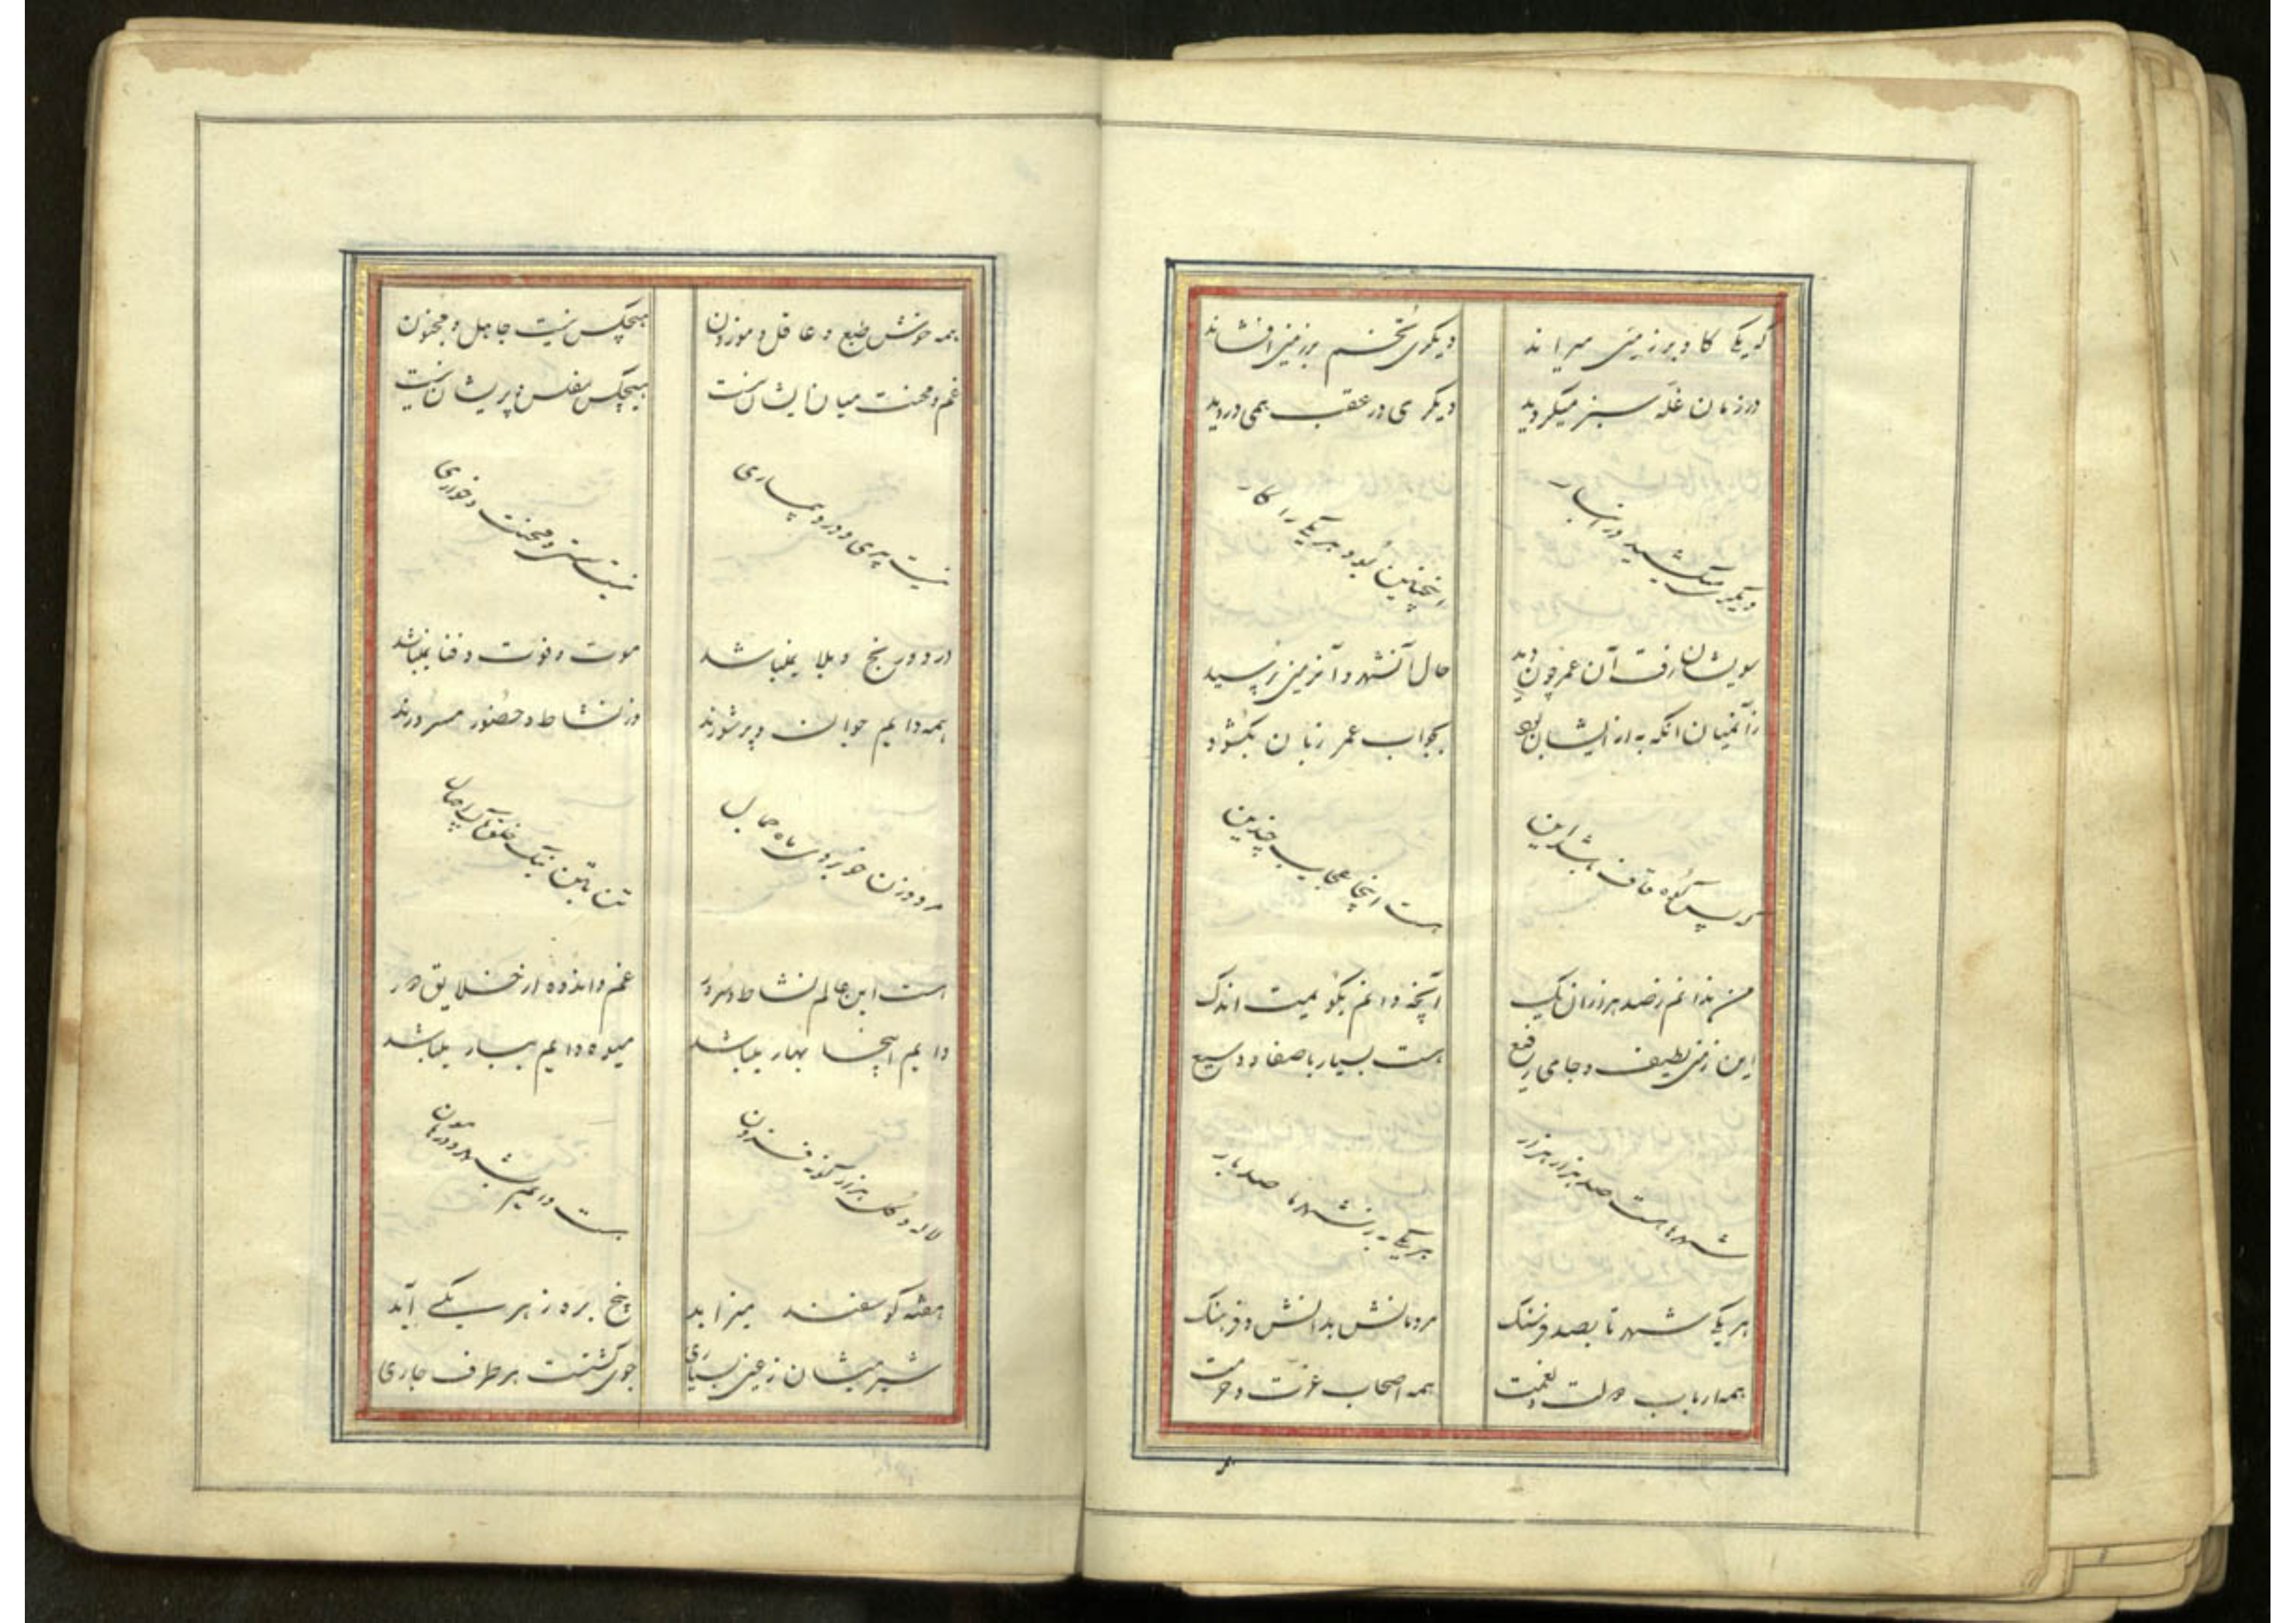 که یکی گاو بر زمین میراند دیگری تخم بر زمین افشاند
در زمان غله سبز میگردید دیگری در عقب همی دروید
دیگری میکشید در انبار اینچنین بود هر یکی را کار
سویشان رفت آن عمر چون دید حال آنشهر و آنزمین پرسید
زآنمیان آنکه به از ایشان بود بجواب عمر زبان بکشود
کز پس کوه قاف باشد این هست اینجا عجایب چندین
من ندانم ز صد هزاران یک آنچه دانم بگویمت اندک
این زمین لطیف و جای رفیع هست بسیار با صفا و وسیع
شهرها هست صد هزار هزار هر یکی به ز شهرها صد بار
هر یکی شهر تا بصد فرسنگ مردمانش بدانش و فرهنگ
همه ارباب دولت و نعمت همه اصحاب عزت و حرمت
همه خوش طبع و عاقل و موزون هیچکس نیست جاهل و مجنون
غم و محنت میان ایشان نیست هیچکس مفلس و پریشان نیست
نیست پیری و درد و بیماری نیست سستی و محنت و خواری
درد و رنج و بلا نمیباشد موت و فوت و فنا نمیباشد
همه دایم جوان و پرشورند در نشاط و حضور مسرورند
مرد و زن خوبروی ماه جمال تن بتن نیک خلق
است این عالم نشاط و سرور غم و اندوه از خلایق دور
دایم اینجا بهار میباشد میوه دایم ببار میباشد
لاله و گل هزار گونه فزون هست دایم بشهر و در هامون
هفته گوسفند میزاید پنج بره ز هر یکی آید
شیر میشان ز عین بسیاری جوی گشتست هر طرف جاری